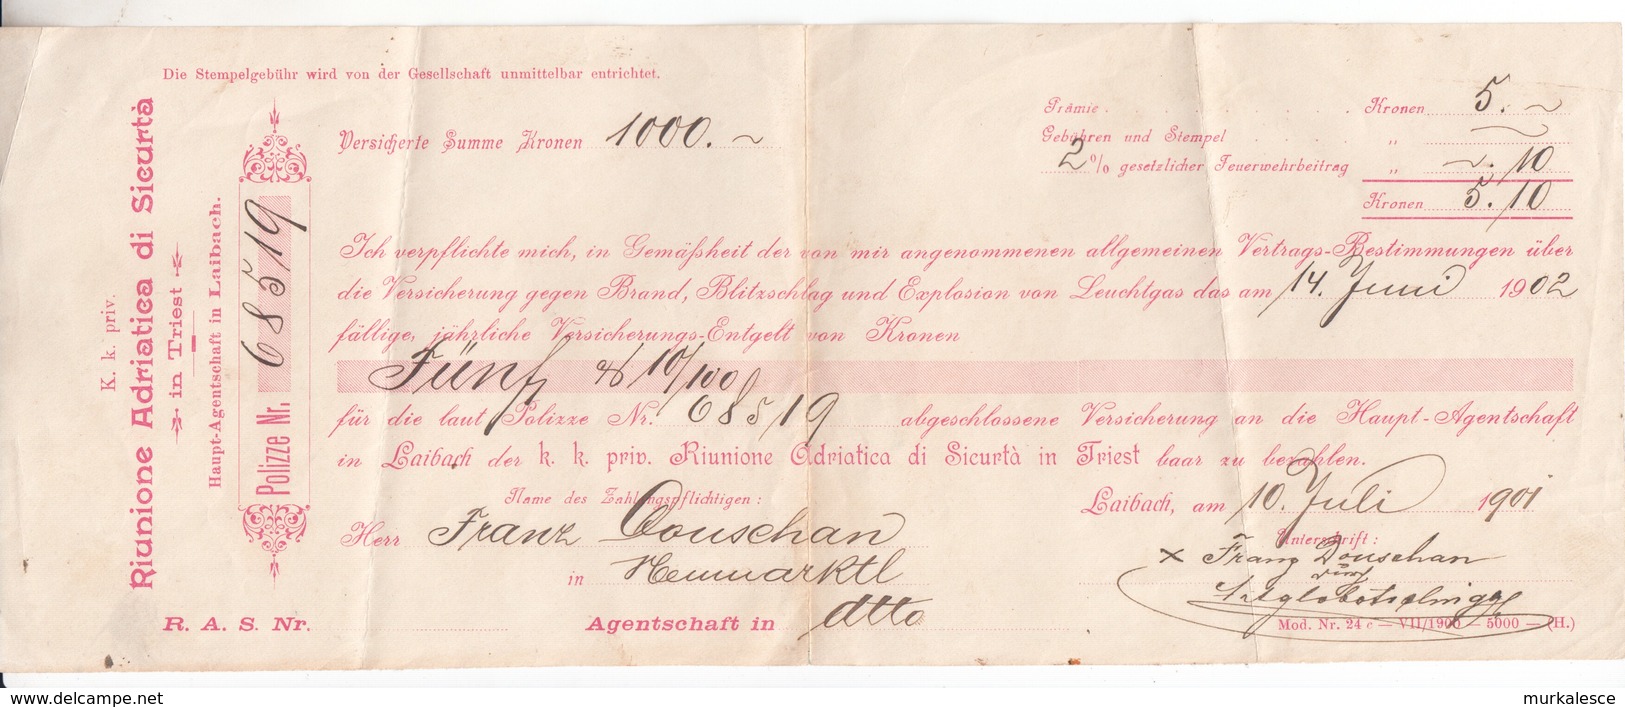 K. k. priv.
Riunione Adriatica di Sicurtà
in Triest
Haupt-Agentschaft in Laibach.
Polizze Nr. 68519
Die Stempelgebühr wird von der Gesellschaft unmittelbar entrichtet.
Versicherte Summe Kronen 1000.~
Prämie . . . Kronen 5.~
Gebühren und Stempel . . . „ ~
2 % gesetzlicher Feuerwehrbeitrag „ ~.10
Kronen 5.10
Ich verpflichte mich, in Gemäßheit der von mir angenommenen allgemeinen Vertrags-Bestimmungen über
die Versicherung gegen Brand, Blitzschlag und Explosion von Leuchtgas das am 14. Juni 1902
fällige, jährliche Versicherungs-Entgelt von Kronen
Fünf & 10/100
für die laut Polizze Nr. 68519 abgeschlossene Versicherung an die Haupt-Agentschaft
in Laibach der k. k. priv. Riunione Adriatica di Sicurtà in Triest baar zu bezahlen.
Name des Zahlungspflichtigen:
Laibach, am 10. Juli 1901
Herr Franz Douschan
Unterschrift:
x Franz Douschan
in Neumarktl
durch
R. A. S. Nr.
Agentschaft in dtto
Mod. Nr. 24 c — VII/1900 — 5000 — (H.)
murkalesce